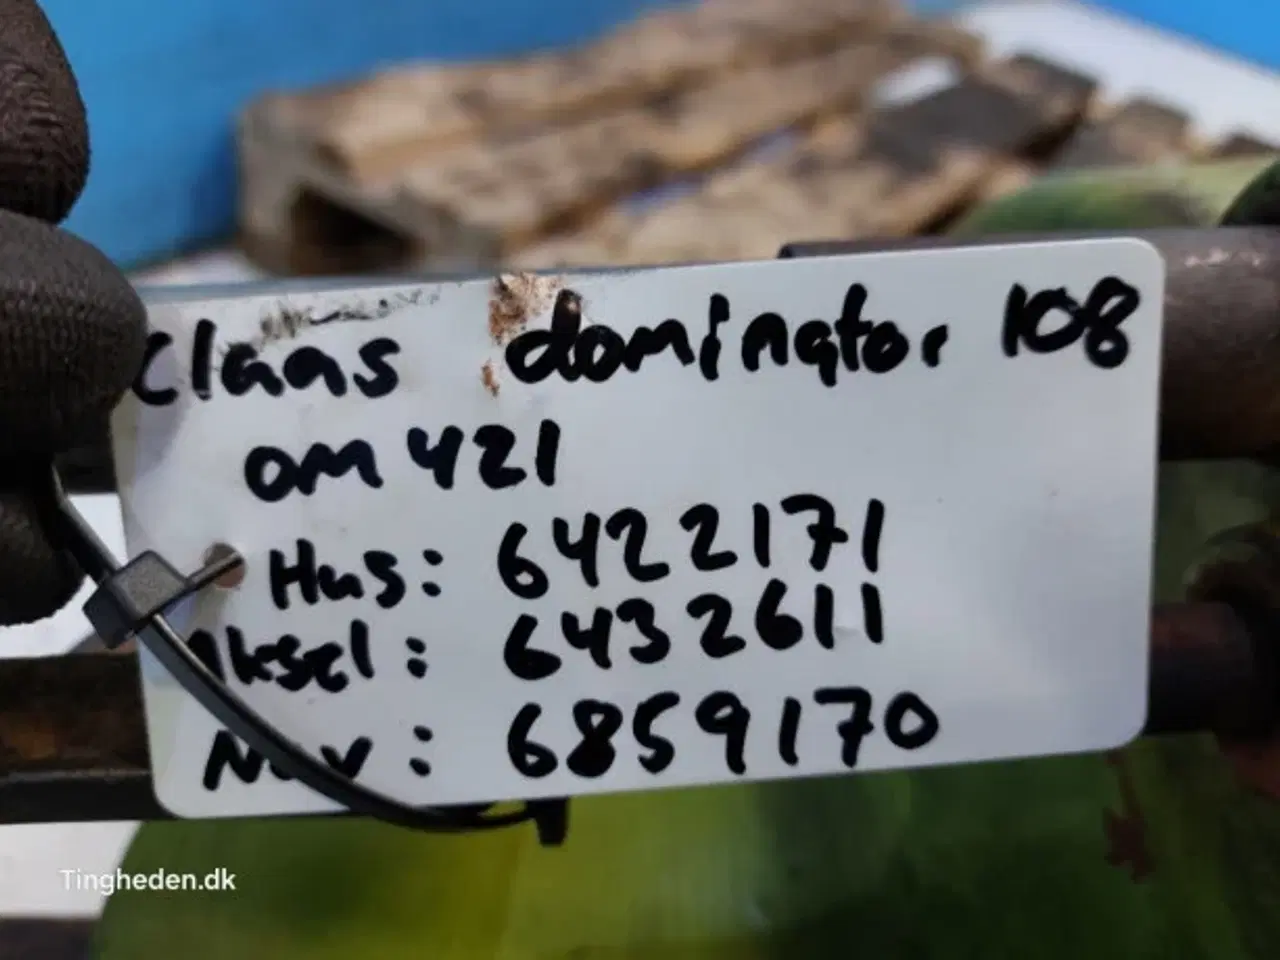 Claas dominator 108
OM 421
Hus: 6422171
Aksel: 6432611
Nav: 6859170
Tingheden.dk